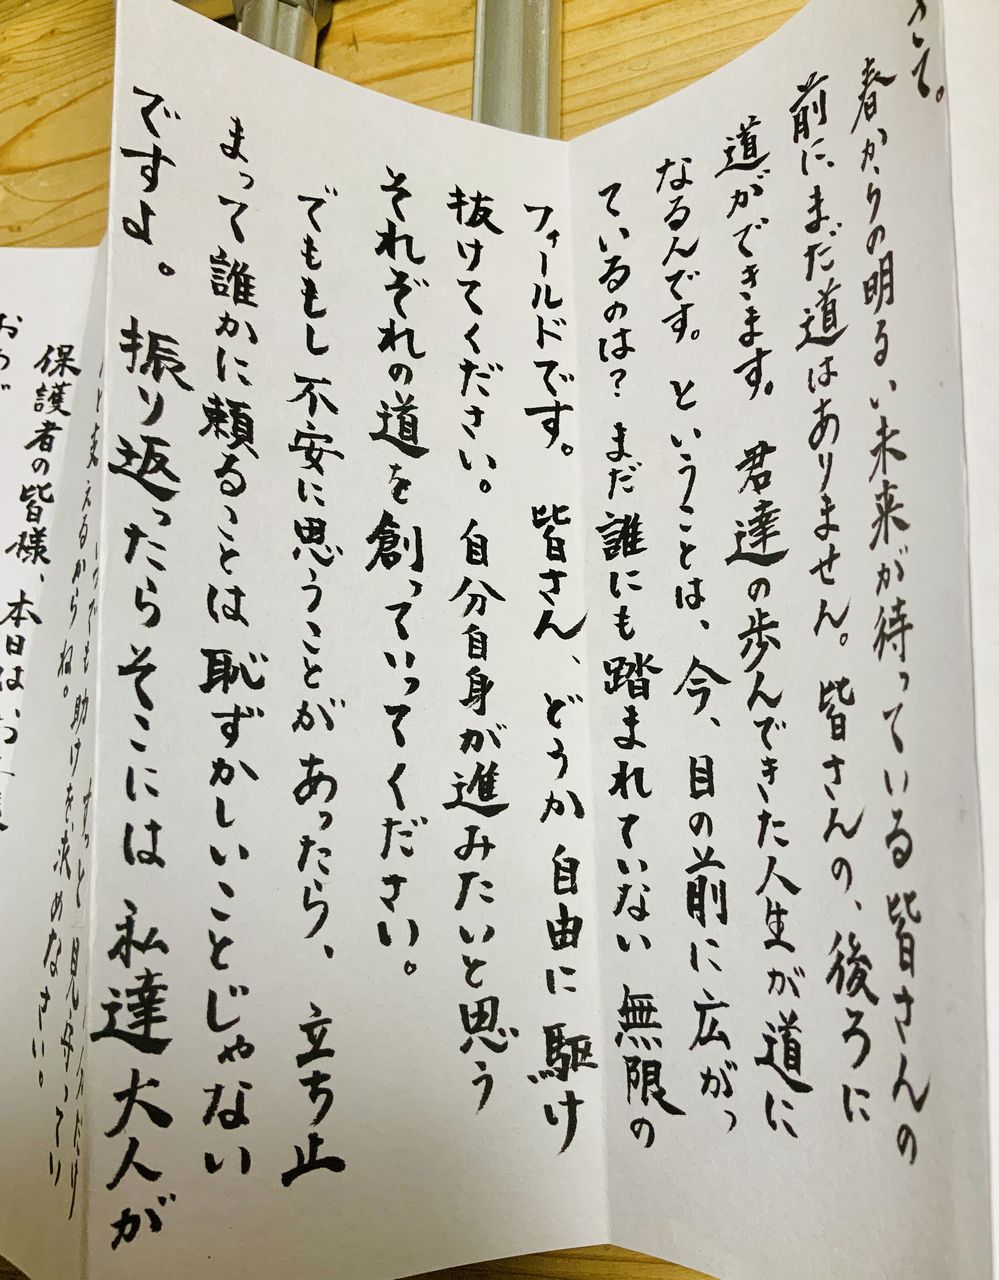 いて。
春からの明るい未来が待っている皆さんの
前にまだ道はありません。皆さんの、後ろに
道ができます。君達の歩んできた人生が道に
なるんです。ということは、今、目の前に広がっ
ているのは？まだ誰にも踏まれていない無限の
フィールドです。皆さん、どうか自由に駆け
抜けてください。自分自身が進みたいと思う
それぞれの道を創っていってください。
でももし不安に思うことがあったら、立ち止
まって誰かに頼ることは恥ずかしいことじゃない
ですよ。振り返ったらそこには私達大人が
いつでも助けを求めなさい。
と支えるからね。
保護者の皆様、本日は